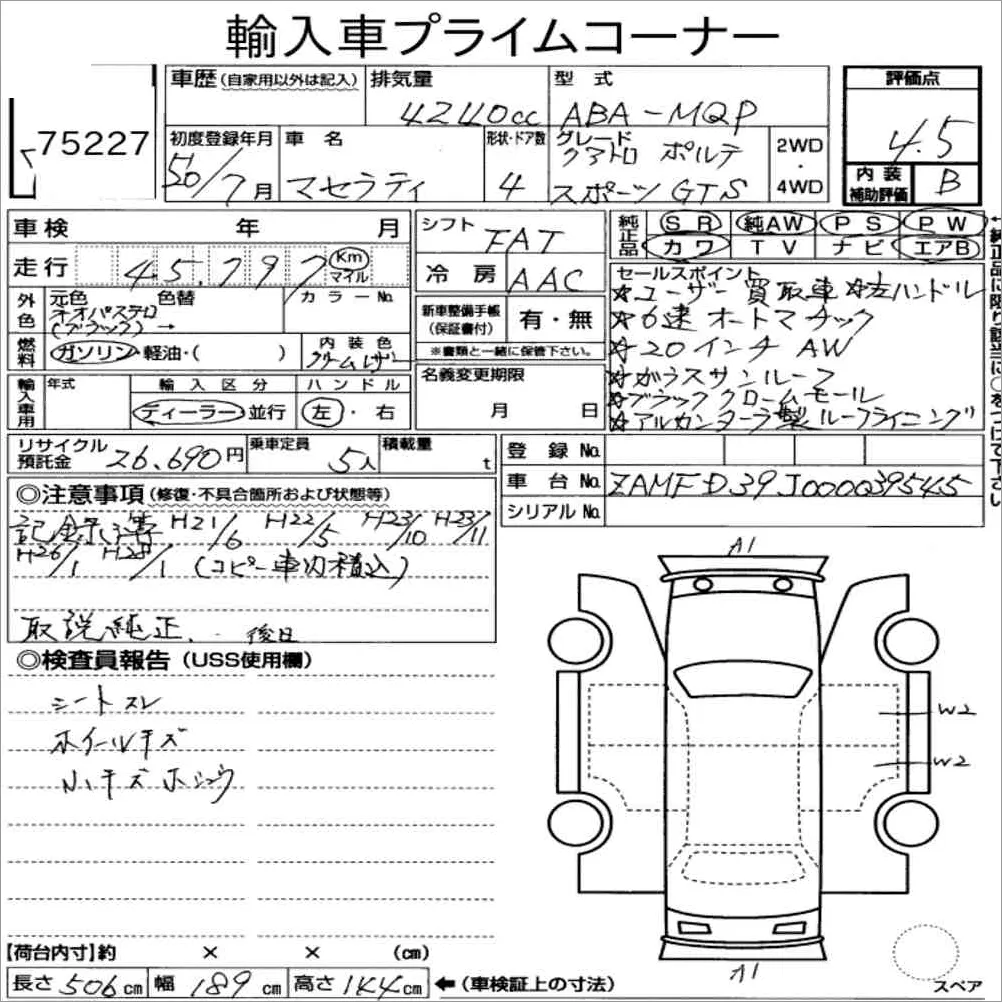 輸入車プライムコーナー
75227
車歴 (自家用以外は記入) 排気量 型式 評価点
4240cc ABA-MQP 4.5
初度登録年月 車名 形状・ドア数 グレード 2WD・4WD 内装補助評価 B
7月 マセラティ 4 クアトロ ポルテ
スポーツ GTS
車検 年 月 シフト FAT 純正品 SR 純AW PS PW
カワ TV ナビ エアB
走行 45,797 Km マイル 冷房 AAC
外色 元色 色替 カラーNo.
(ブラック) →
新車整備手帳(保証書付) 有・無
※書類と一緒に保管下さい。
セールスポイント
☆ユーザー買取車 ☆左ハンドル
☆6速オートマチック
☆20インチ AW
☆ガラスサンルーフ
☆ブラッククロームモール
☆アルカンターラ製ルーフライニング
燃料 ガソリン・軽油・( ) 内装色
輸入車用 年式 輸入区分 ハンドル 名義変更期限
ディーラー・並行 左・右 月 日
リサイクル預託金 26,690円 乗車定員 5人 積載量 t
登録No.
車台No. ZAMFD39J000039545
シリアルNo.
◎注意事項 (修復・不具合箇所および状態等)
記録簿 H21/6 H22/5 H23/10 H23/11
H26/1 H28/1 (コピー車内積込)
取説純正、後日
◎検査員報告 (USS使用欄)
シートスレ
ホイールキズ
小キズ ホシュウ
A1
W2
W2
A1
スペア
【荷台内寸】約 × × (cm)
長さ 506cm 幅 189cm 高さ 144cm ←(車検証上の寸法)